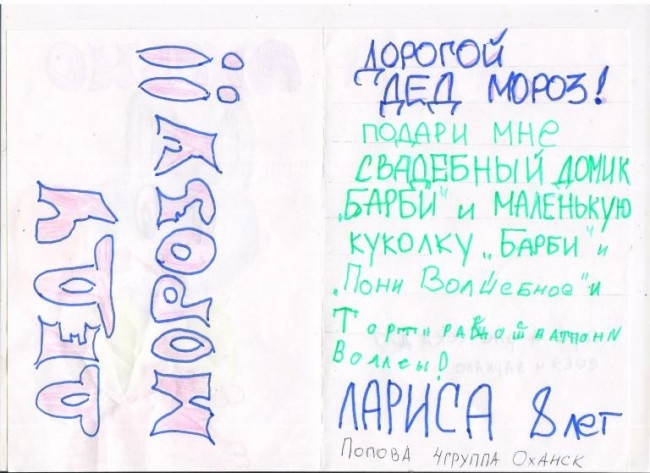 ДЕДУ
МОРОЗУ!!!
ДОРОГОЙ
ДЕД МОРОЗ!
ПОДАРИ МНЕ
СВАДЕБНЫЙ ДОМИК
„БАРБИ" и МАЛЕНЬКУЮ
КУКОЛКУ „БАРБИ" и
„Пони Волшебное" и
Волосы!
ЛАРИСА 8 лет
ПОПОВА 4 ГРУППА ОХАНСК